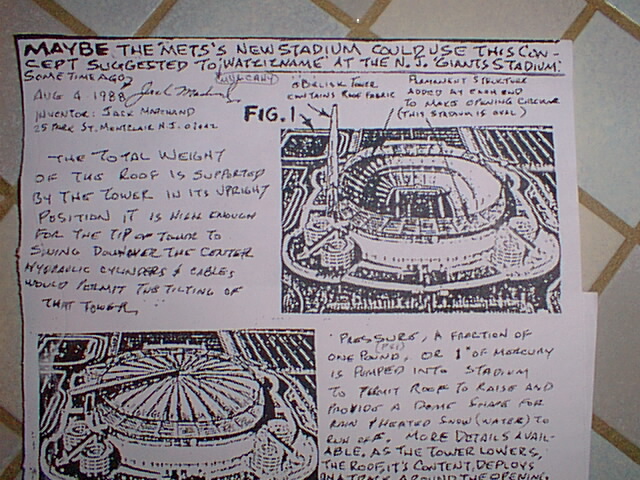 MAYBE THE METS'S NEW STADIUM COULD USE THIS CON-
CEPT SUGGESTED TO 'WATZIZNAME' AT THE N.J. 'GIANTS STADIUM.'
SOMETIME AGO?
MULCAHY
AUG 4 1988 Jack Marchand
INVENTOR: JACK MARCHAND
25 PARK ST. MONTCLAIR N.J. 07042
FIG. 1
OBELISK TOWER
CONTAINS ROOF FABRIC
PERMANENT STRUCTURE
ADDED AT EACH END
TO MAKE OPENING CIRCULAR
(THIS STADIUM IS OVAL)
THE TOTAL WEIGHT
OF THE ROOF IS SUPPORTED
BY THE TOWER IN ITS UPRIGHT
POSITION IT IS HIGH ENOUGH
FOR THE TIP OF TOWER TO
SWING DOWN OVER THE CENTER
HYDRAULIC CYLINDERS & CABLES
WOULD PERMIT THE TILTING OF
THAT TOWER
PRESSURE, A FRACTION OF
ONE POUND, (PSI) OR 1" OF MERCURY
IS PUMPED INTO STADIUM
TO PERMIT ROOF TO RAISE AND
PROVIDE A DOME SHAPE FOR
RAIN & HEATED SNOW (WATER) TO
RUN OFF. MORE DETAILS AVAIL-
ABLE, AS THE TOWER LOWERS,
THE ROOF, IT'S CONTENT, DEPLOYS
ON A TRACK AROUND THE OPENING.